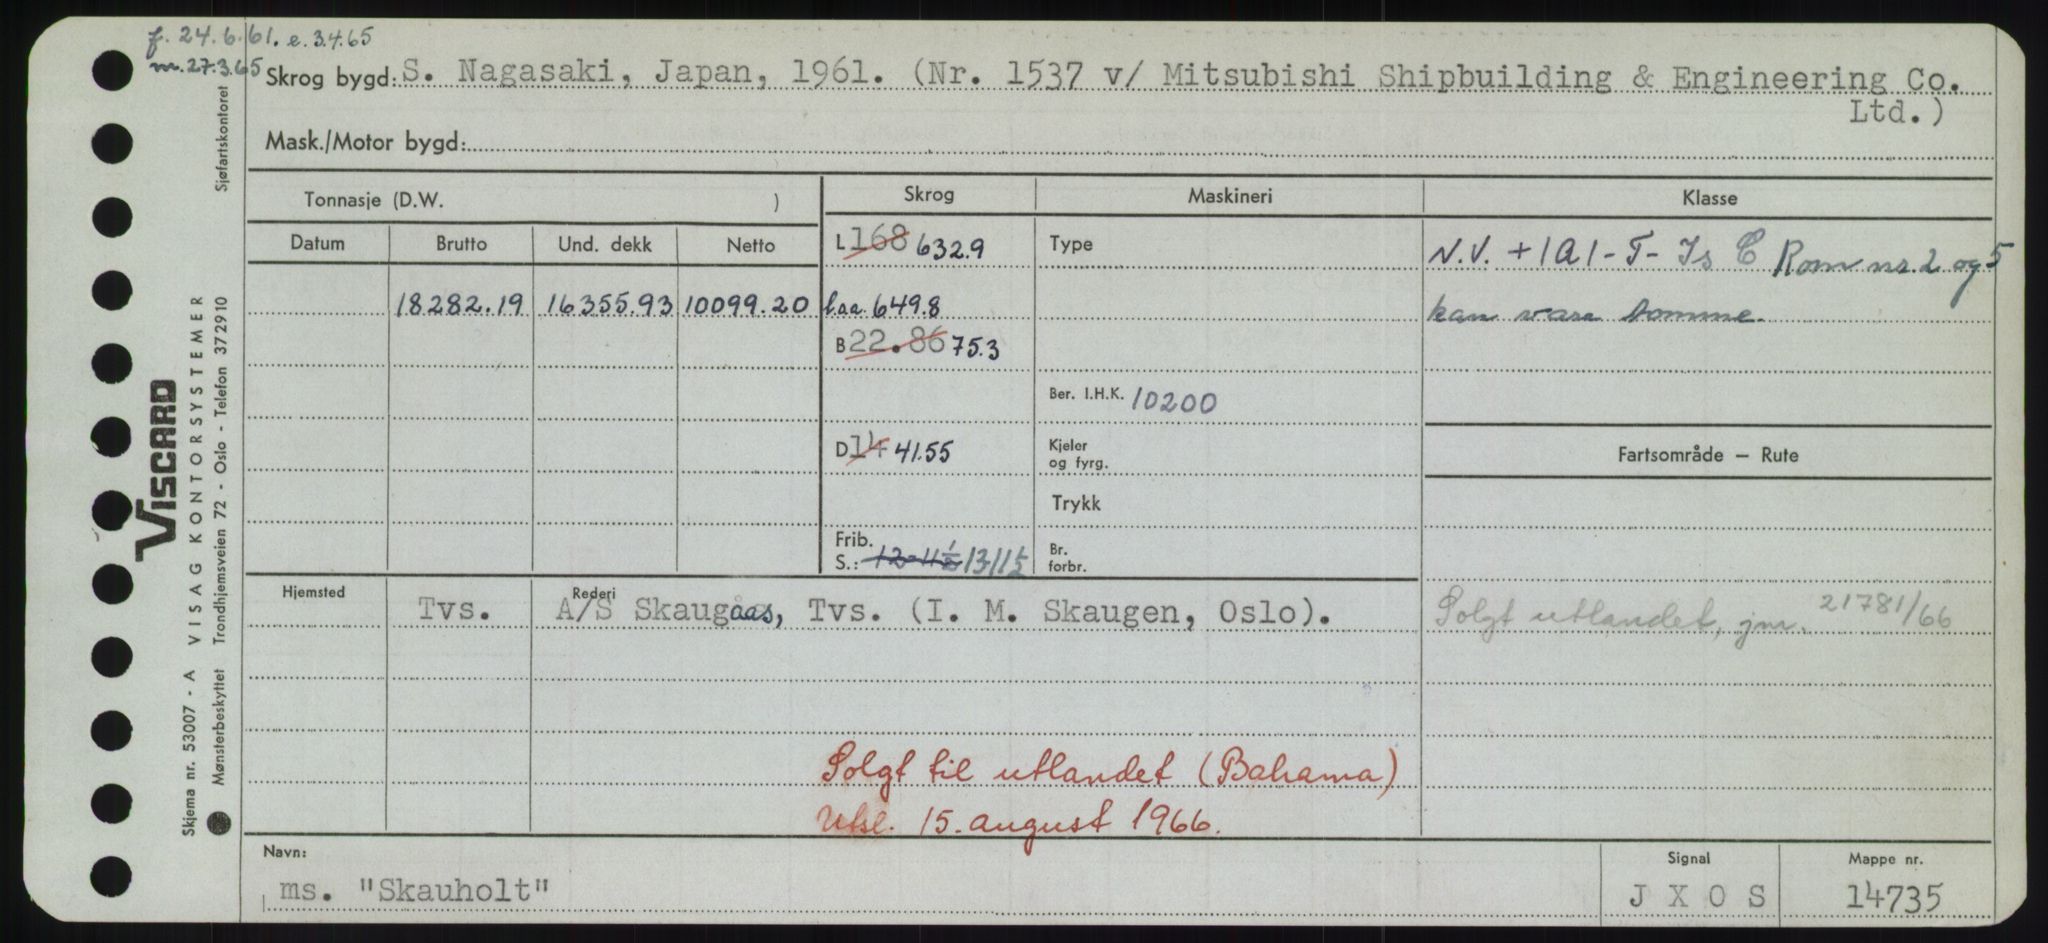 f. 24.6.61. e. 3.4.65
m. 27.3.65
Skrog bygd: S. Nagasaki, Japan, 1961. (Nr. 1537 v/ Mitsubishi Shipbuilding & Engineering Co.
Ltd.)
Mask./Motor bygd:
Tonnasje (D.W. )
Skrog
Maskineri
Klasse
Datum
Brutto
Und. dekk
Netto
L 168 632.9
Type
N.V. + 1A1 - T - Is C Rom nr. 2 og 5
18282.19 16355.93 10099.20
l.aa. 649.8
kan være tomme.
B 22.86 75.3
Ber. I.H.K. 10200
D 14 41.55
Kjeler
og fyrg.
Fartsområde — Rute
Trykk
Frib.
S.: 12-11½ 13/11½
Br.
forbr.
Hjemsted
Rederi
Tvs. A/S Skaugaas, Tvs. (I. M. Skaugen, Oslo).
Solgt utlandet, jnr. 21781/66
Solgt til utlandet (Bahama)
Utsl. 15. august 1966.
Navn:
ms. "Skauholt"
Signal
J X O S
Mappe nr.
14735
Skjema nr. 53007 - A VISAG KONTORSYSTEMER
Viscard
Mønsterbeskyttet Trondhjemsveien 72 - Oslo - Telefon 372910 Sjøfartskontoret